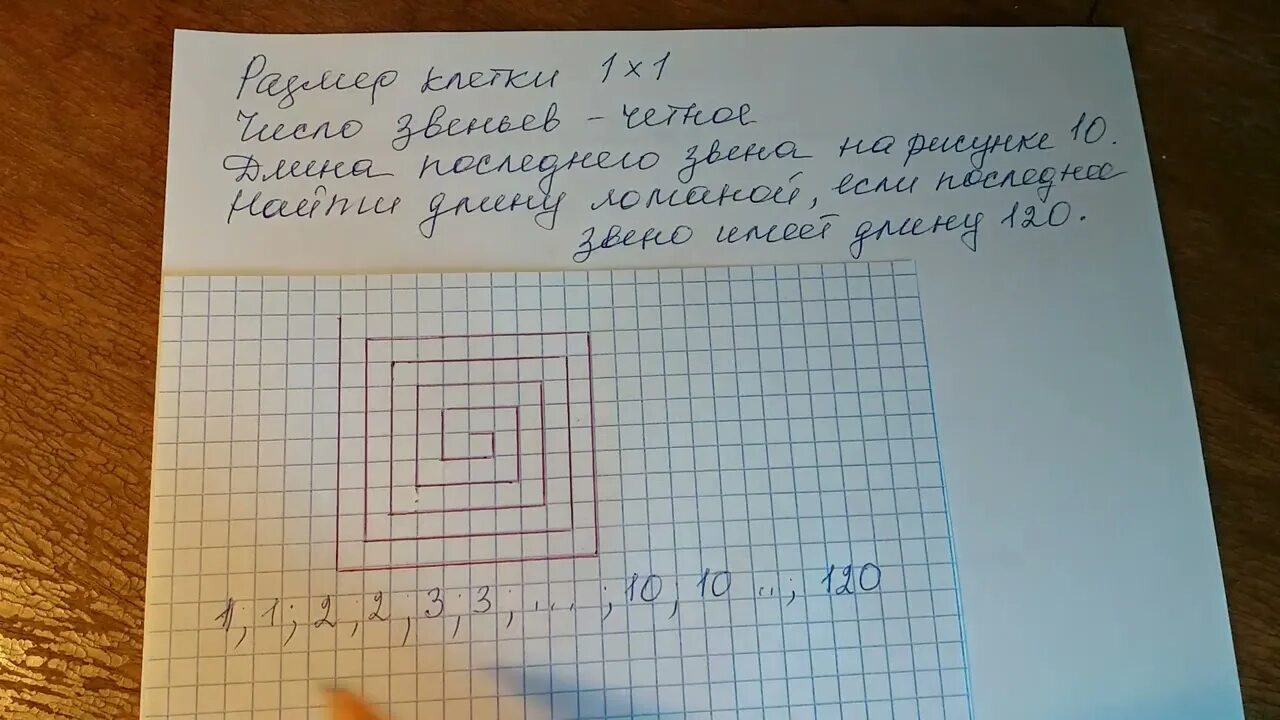 Размер клетки 1×1
Число звеньев – четное
Длина последнего звена на рисунке 10.
Найти длину ломаной, если последнее
звено имеет длину 120.
1; 1; 2; 2; 3; 3; ... ; 10; 10 ..; 120